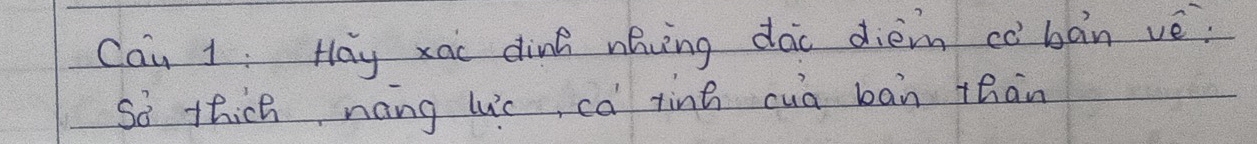 Câu 1: Hãy xác định những đặc điểm cơ bản về:
Sở thích, năng lực, cá tính của bản thân